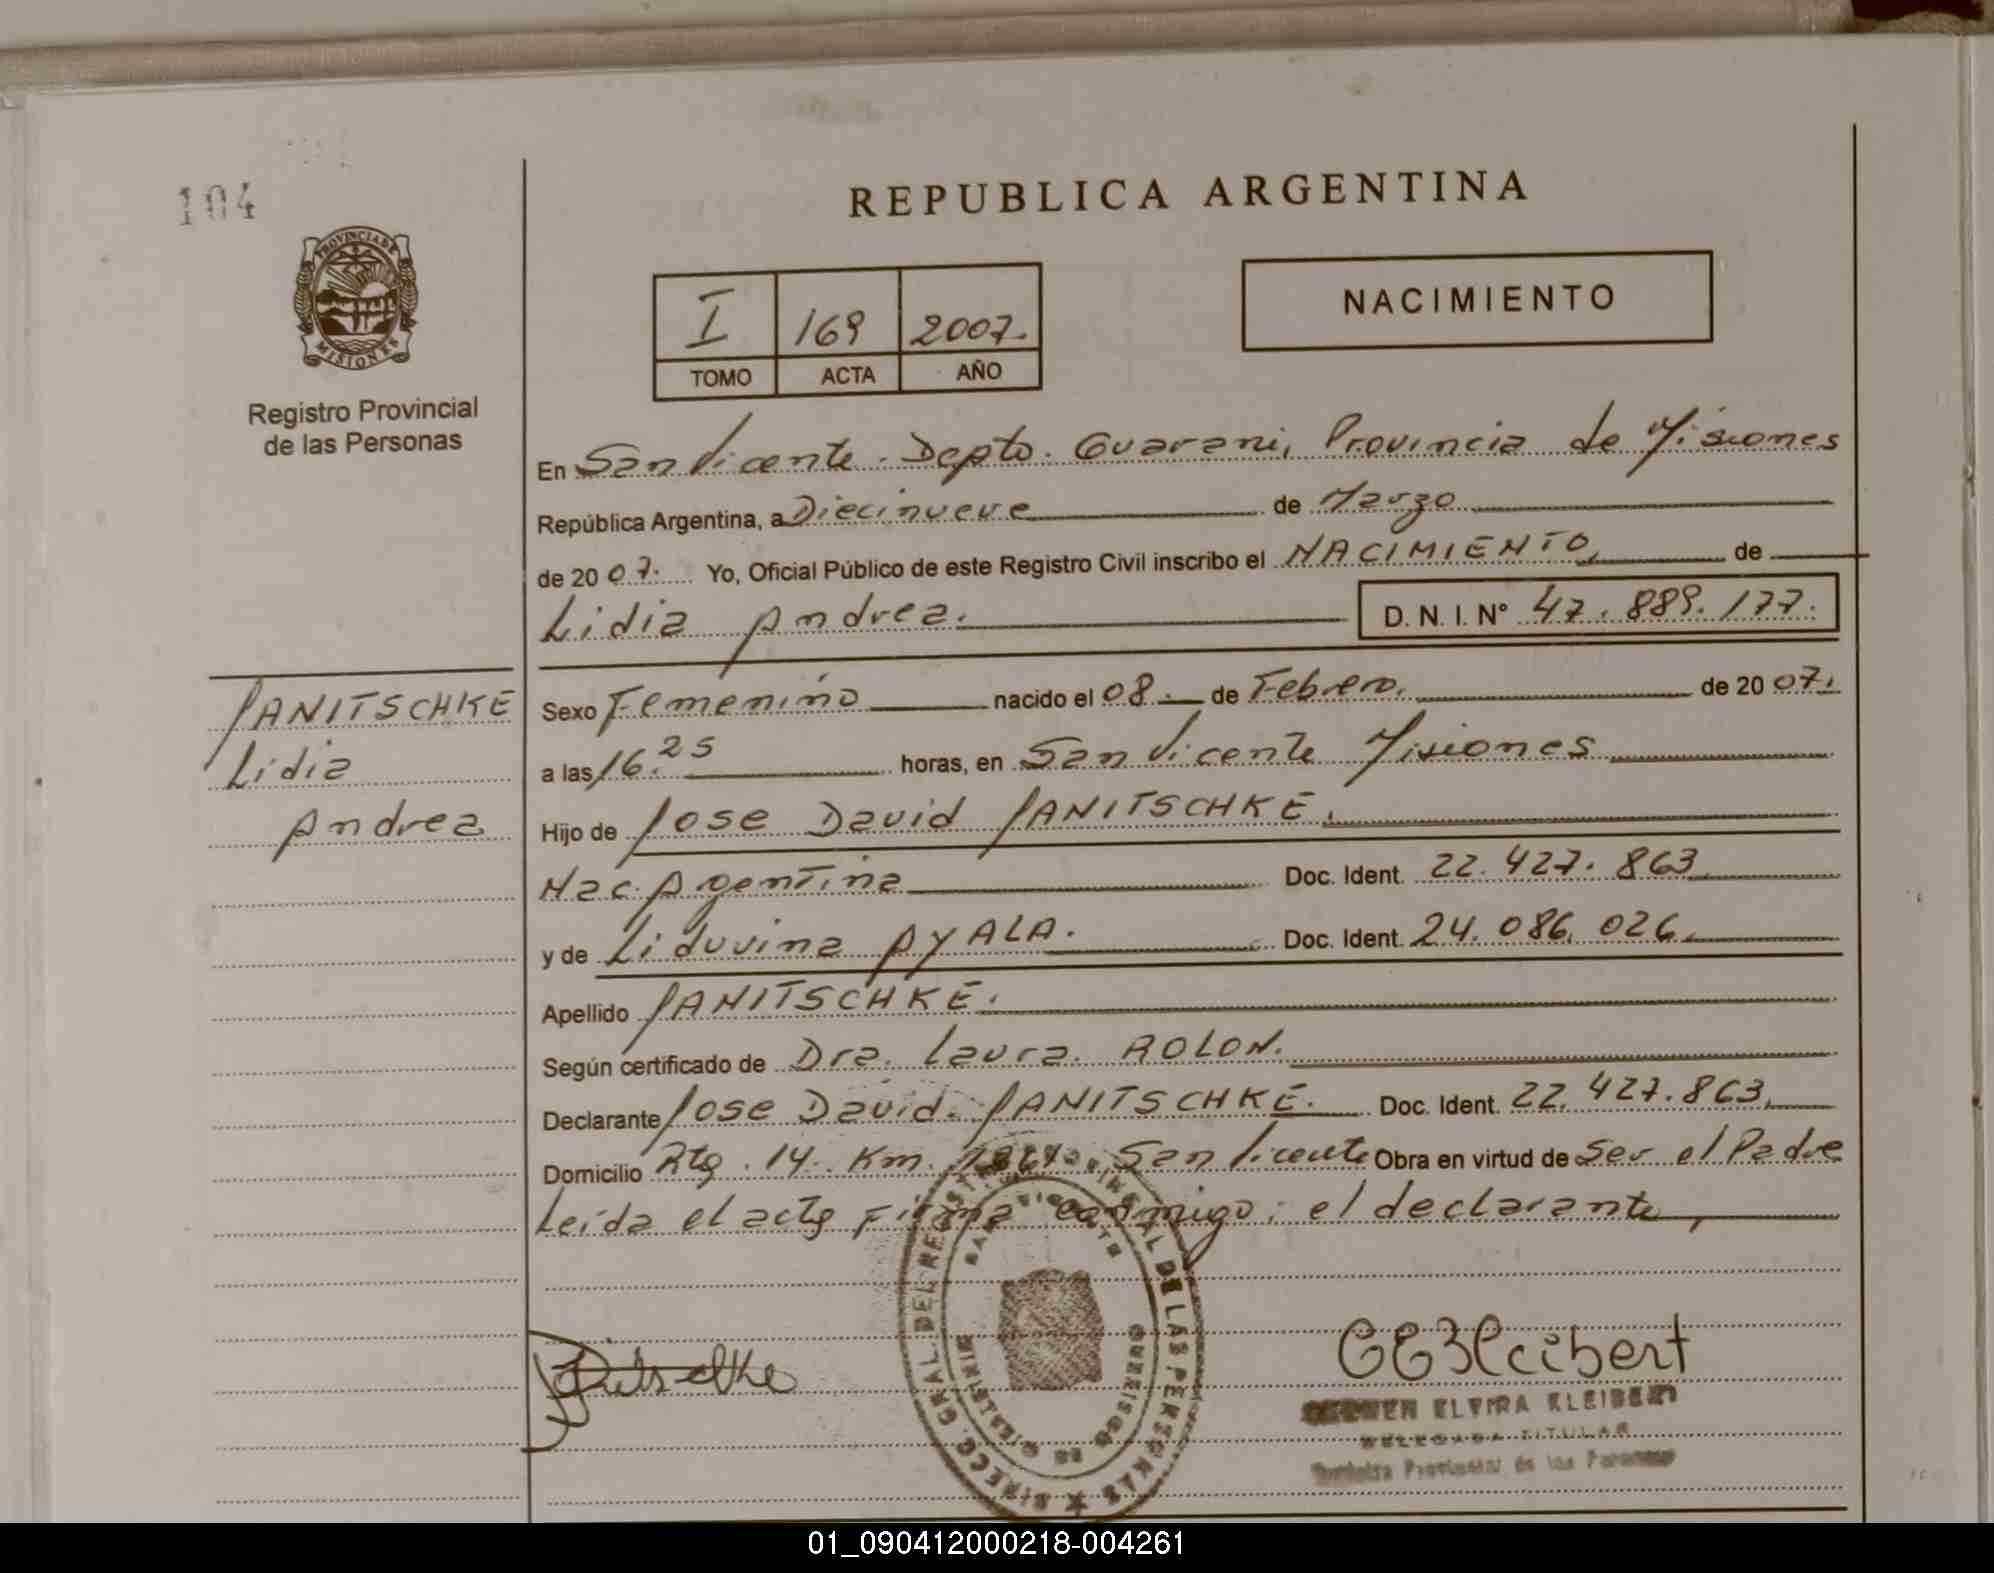 104
REPUBLICA ARGENTINA
PROVINCIA DE
MISIONES
Registro Provincial
de las Personas
I 169 2007.
TOMO ACTA AÑO
NACIMIENTO
En San Vicente. Depto. Guarani, Provincia de Misiones
República Argentina, a Diecinueve de Marzo
de 2007. Yo, Oficial Público de este Registro Civil inscribo el NACIMIENTO, de
Lidia Andrea. D. N. I. N° 47.889.177.
JANITSCHKE
Lidia
Andrea
Sexo Femenino nacido el 08. de Febrero. de 2007.
a las 16.25 horas, en San Vicente Misiones
Hijo de Jose David JANITSCHKE.
Nac. Agentina Doc. Ident. 22.427.863
y de Liduvina AYALA. Doc. Ident. 24.086.026.
Apellido JANITSCHKE.
Según certificado de Dra. Laura. ROLON.
Declarante Jose David. JANITSCHKE. Doc. Ident. 22.427.863.
Domicilio Rta. 14. Km. San Vicente Obra en virtud de Ser el Padre
Leida el acta Firma conmigo: el declarante,
DIRECC. GRAL. DEL REGIST. PROVINCIAL DE LAS PERSONAS
SAN VICENTE
ELVIRA KLEIBERT
TITULAR
Provincial de las Personas
01_090412000218-004261